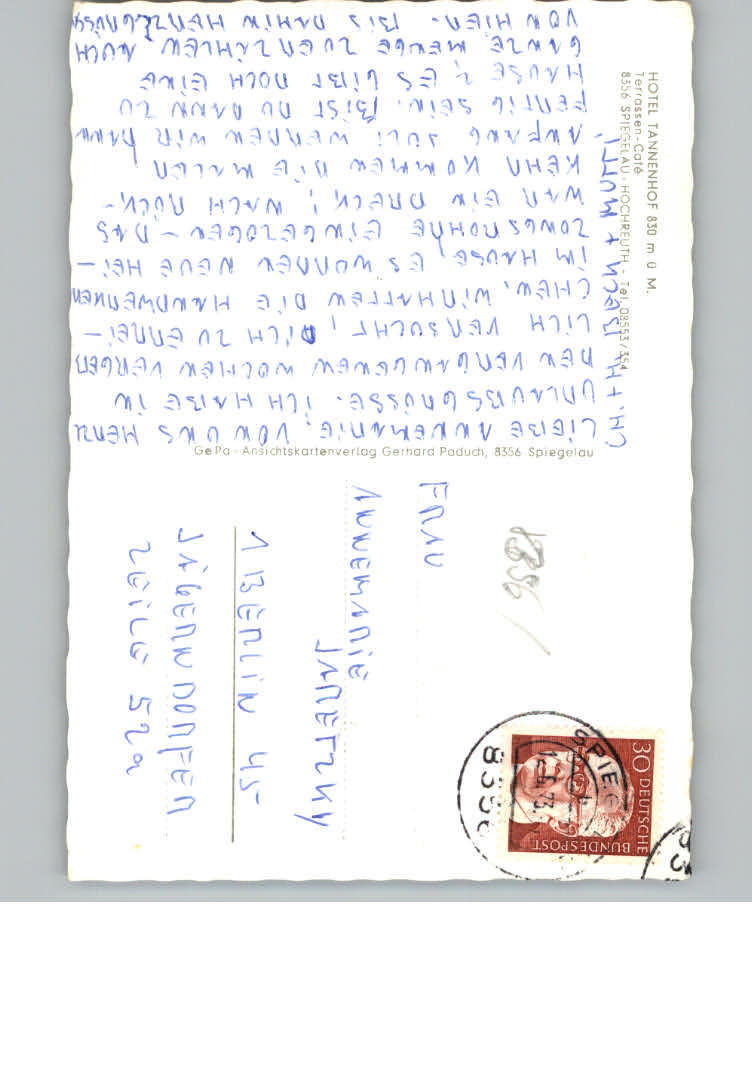 HOTEL TANNENHOF 830 m ü M.
Terrassen-Café
8356 SPIEGELAU-HOCHREUTH - Tel. 08553/354
LIEBE ANNEMARIE, VON UNS HERZL
URLAUBSGRÜSSE. ICH HABE IN
DEN VERGANGENEN WOCHEN VERGEB
LICH VERSUCHT, DICH ZU ERREI-
CHEN. WIR HATTEN DIE HANDWERKER
IM HAUSE, ES WURDEN NEUE HEI-
ZUNGSROHRE EINGEZOGEN - DAS
WAR EIN DRECK! NACH RÜCK-
KEHR KOMMEN DIE MALER.
ANFANG JULI WERDEN WIR DANN
FERTIG SEIN. BIST DU DANN ZU
HAUSE? ES GIBT DOCH EINE
GANZE MENGE ZU ERZÄHLEN, AUCH
VON HIER. BIS DAHIN HERZL. GRÜSSE
CH. + H. + MUTTI
GePa - Ansichtskartenverlag Gerhard Paduch, 8356 Spiegelau
FRAU
ANNEMARIE
JARETZKY
1 BERLIN 45
JÄGERNDORFER
ZEILE 52a
8356
30 DEUTSCHE
BUNDESPOST